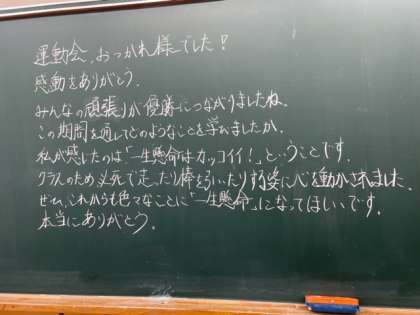 運動会、おつかれ様でした！
感動をありがとう。
みんなの頑張りが優勝につながりましたね。
この期間を通してどのようなことを学びましたか。
私が感じたのは「一生懸命はカッコイイ！」ということです。
クラスのため必死で走ったり棒を引いたりする姿に心を動かされました。
ぜひ、これからも色々なことに「一生懸命」になってほしいです。
本当にありがとう。